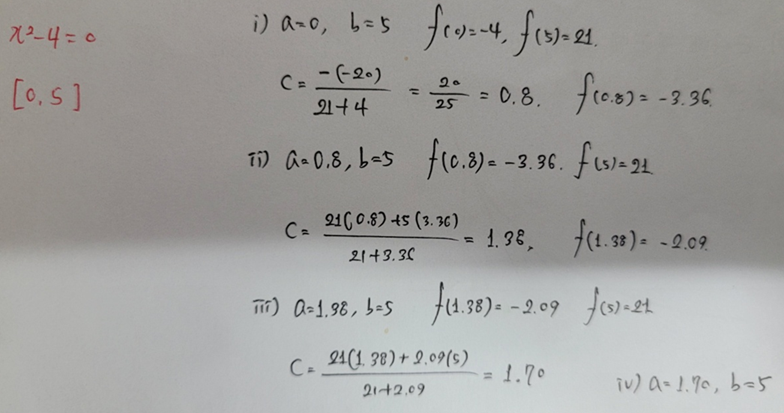 x²-4=0
[0, 5]
i) a=0, b=5 f(0)=-4, f(5)=21.
C = -(-20) / 21+4 = 20/25 = 0.8. f(0.8) = -3.36.
ii) a=0.8, b=5 f(0.8)=-3.36. f(5)=21
C = 21(0.8)+5(3.36) / 21+3.36 = 1.38, f(1.38) = -2.09.
iii) a=1.38, b=5 f(1.38)=-2.09 f(5)=21
C = 21(1.38)+2.09(5) / 21+2.09 = 1.70
iv) a=1.70, b=5